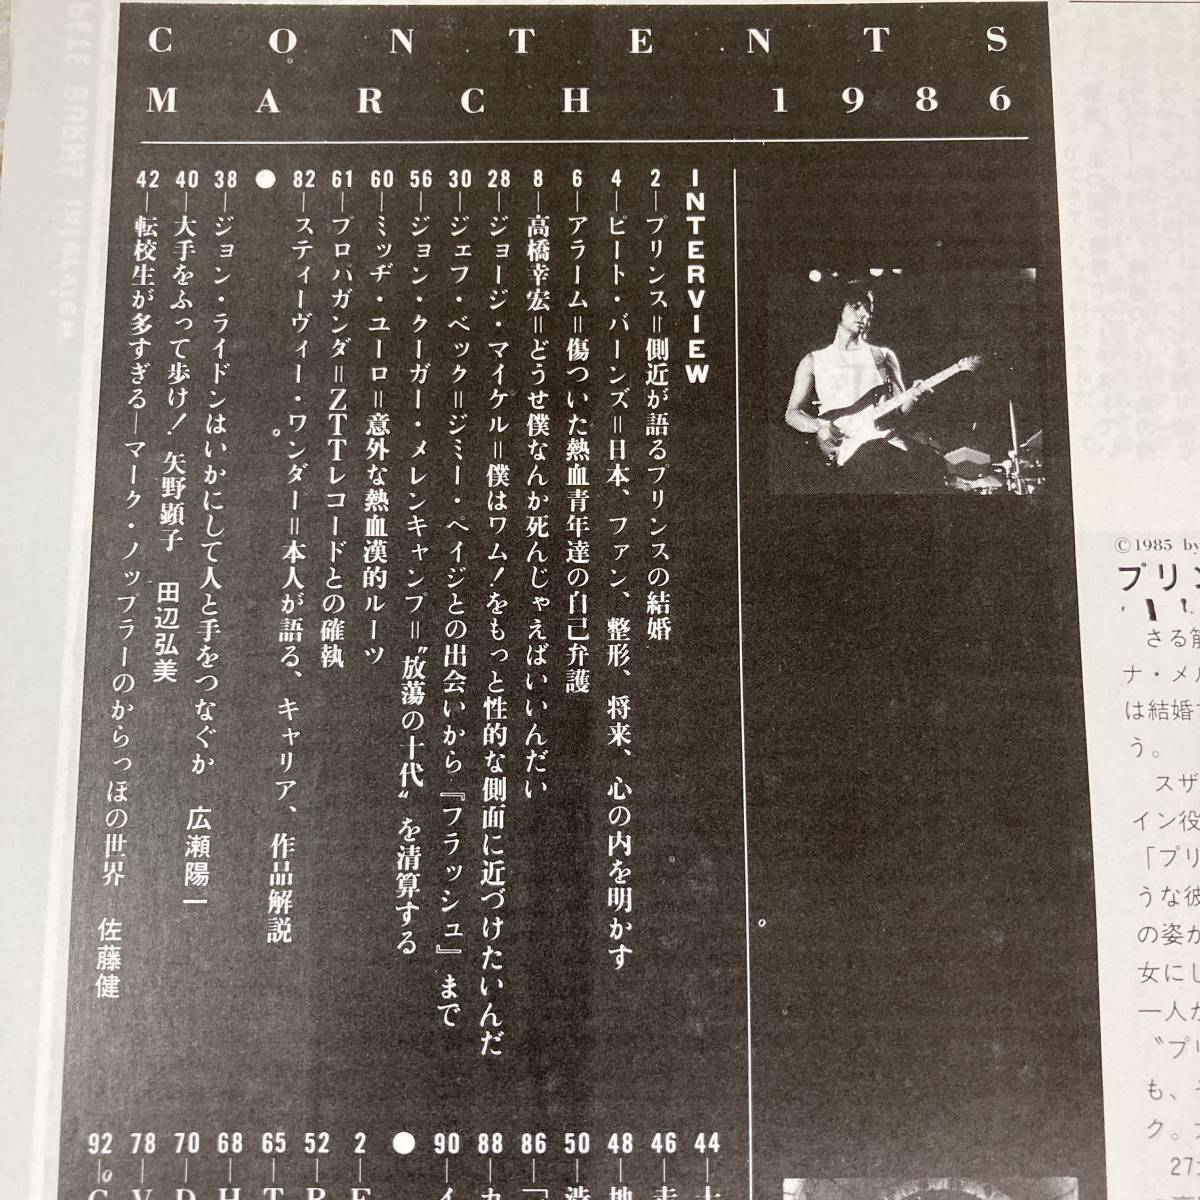 CONTENTS
MARCH 1986
INTERVIEW
2―プリンス＝側近が語るプリンスの結婚
4―ピート・バーンズ＝日本、ファン、整形、将来、心の内を明かす
6―アラーム＝傷ついた熱血青年達の自己弁護
8―高橋幸宏＝どうせ僕なんか死んじゃえばいいんだい
28―ジョージ・マイケル＝僕はワム!をもっと性的な側面に近づけたいんだ
30―ジェフ・ベック＝ジミー・ペイジとの出会いから『フラッシュ』まで
56―ジョン・クーガー・メレンキャンプ＝〝放蕩の十代〟を清算する
60―ミッヂ・ユーロ＝意外な熱血漢的ルーツ
61―プロパガンダ＝ZTTレコードとの確執
82―スティーヴィー・ワンダー＝本人が語る、キャリア、作品解説
●
38―ジョン・ライドンはいかにして人と手をつなぐか 広瀬陽一
40―大手をふって歩け! 矢野顕子 田辺弘美
42―転校生が多すぎる―マーク・ノップラーのからっぽの世界 佐藤健
44
46
48
50
86
88
90
●
2
52
65
68
70
78
92
©1985 by
プリン
さる筋
ナ・メル
は結婚
う。
スザ
イン役
「プリ
うな彼
の姿が
女にし
一人か
〝プリ
も、そ
ク。
27
PETE BURNS interview